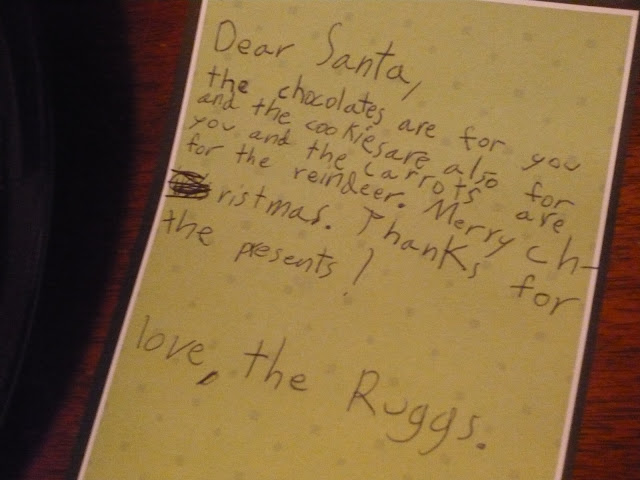 Dear Santa,
the chocolates are for you
and the cookies are also for
you and the carrots are
for the reindeer. Merry Ch-
ristmas. Thanks for
the presents!
love, the Ruggs.